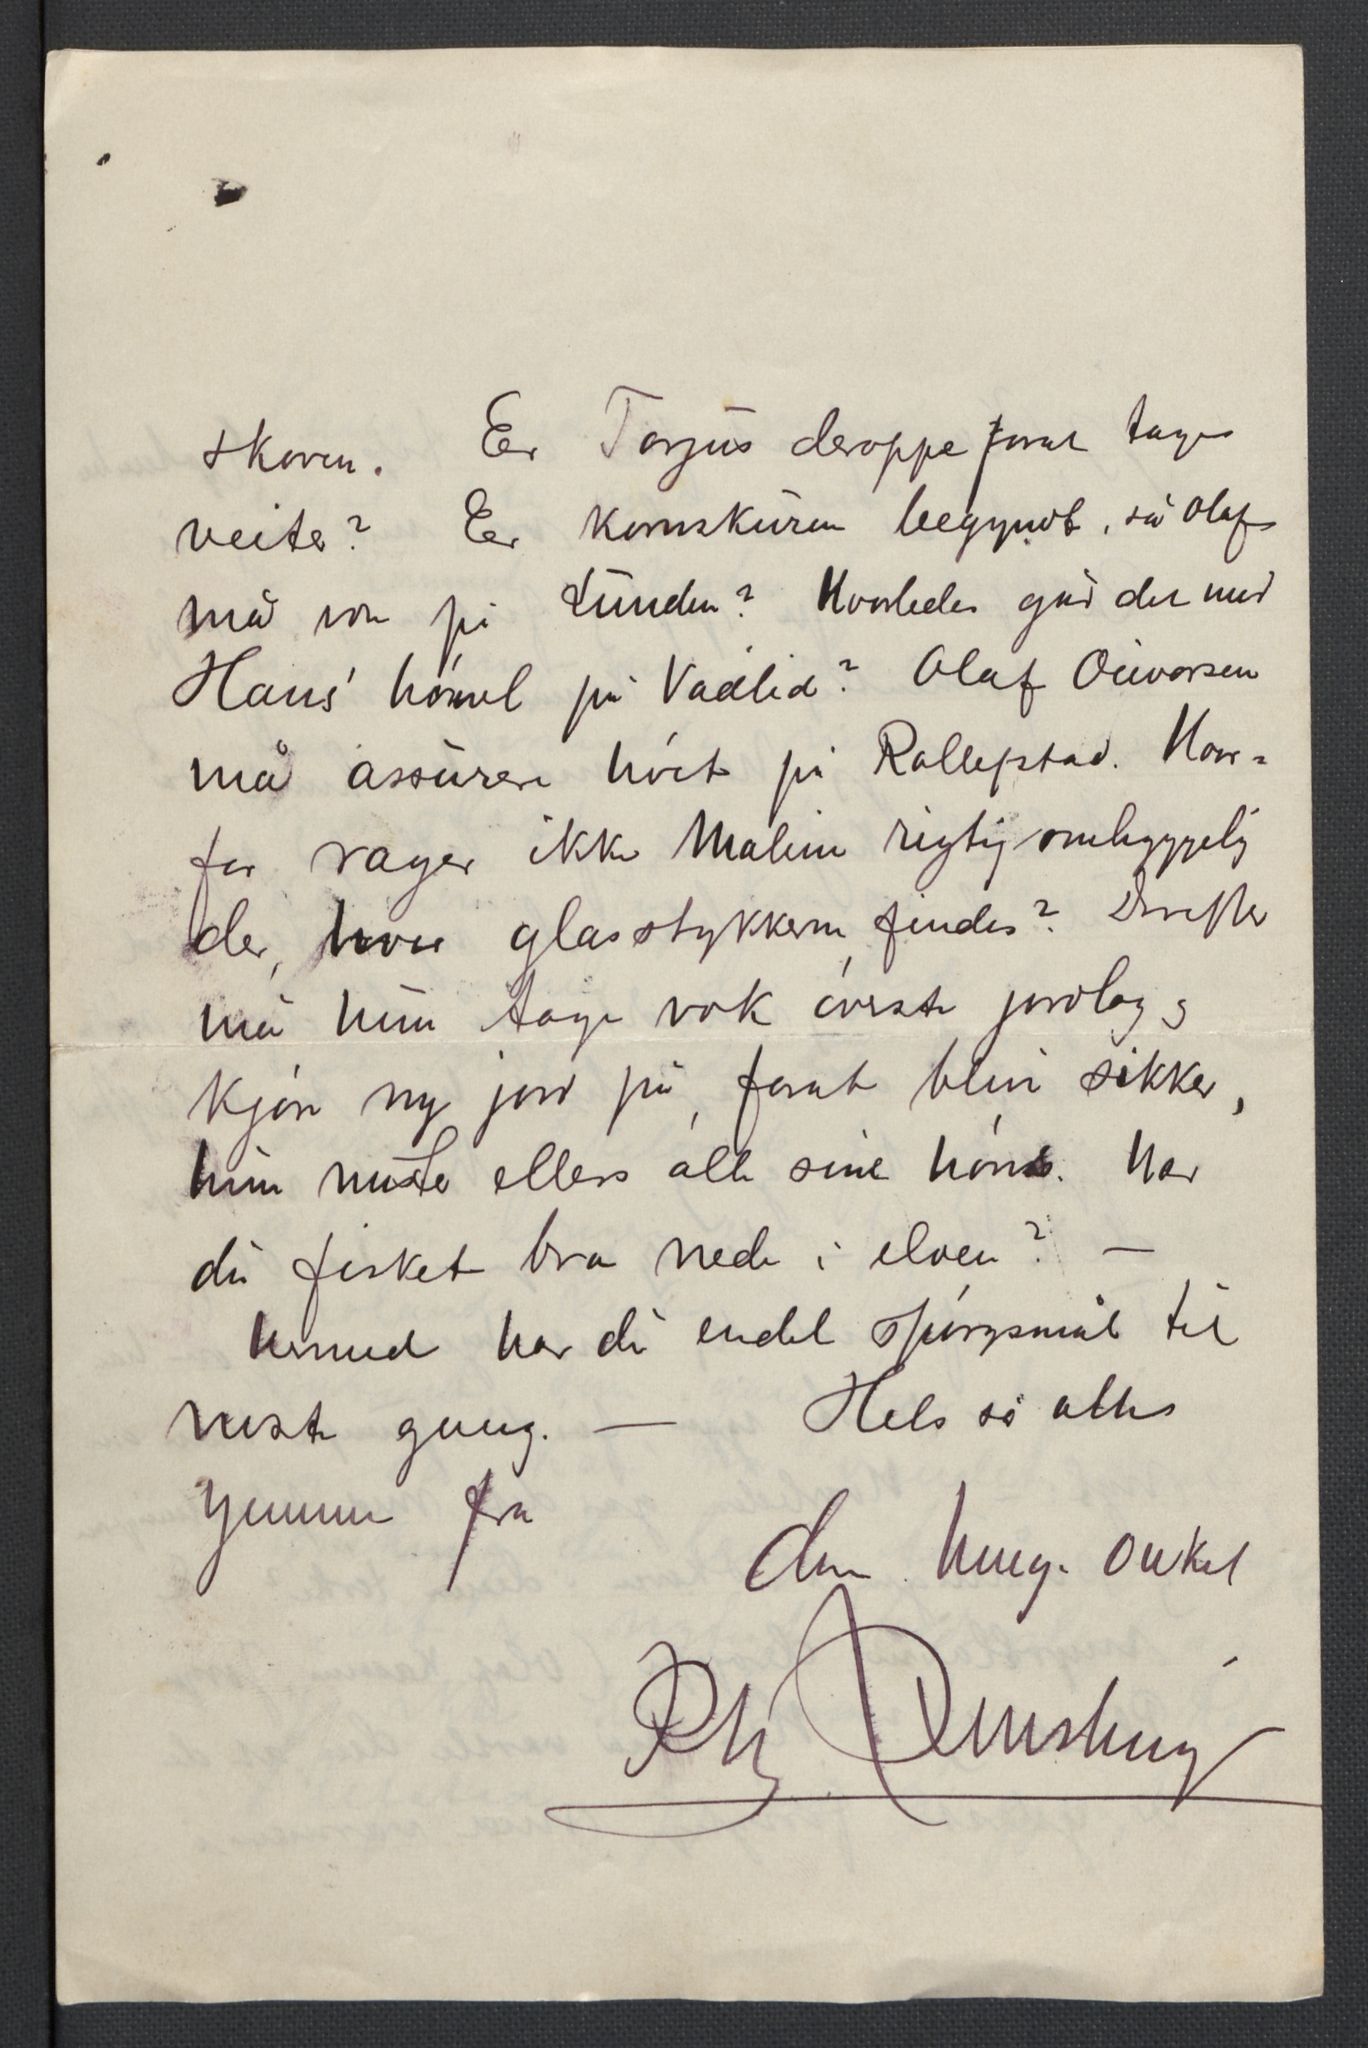 skoven. Er Torjus deroppe forat tage
veiter? Er kornskuren begyndt, så Olafs
må være på tunden? Hvorledes går det med
Hans' hövel på Vadlid? Olaf Ouvorsen
må assurere höiet på Rollefstad. Hvor-
for rager ikke Malene rigtig omhyggelig
der, hvor glasstykkerne findes? Derefter
må hun tage væk överste jordlag og
kjöre ny jord på, forat blive sikker,
hun mister ellers alle sine höns. Har
du fisket bra nede i elven? —
Hermed har du endel spörgsmål til
næste gang. — Hels så alle
hjemme fra
din heng. onkel